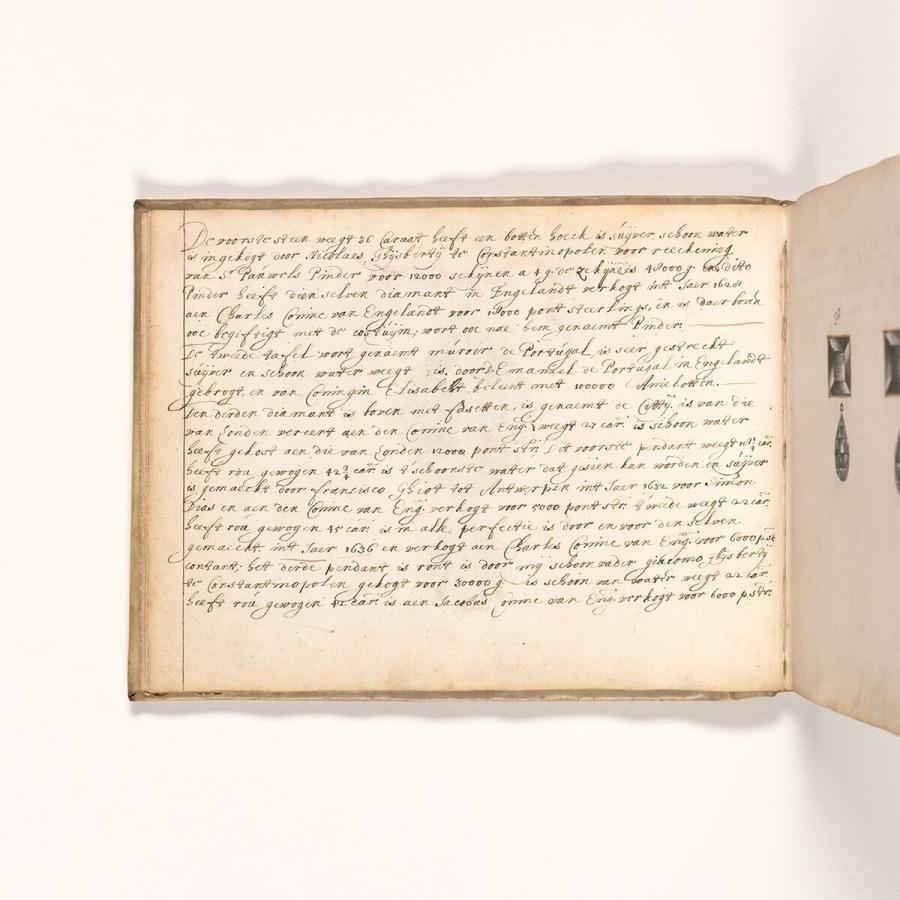 De voorste steen weegt 36 Caraat heeft een botten hoeck is súÿver, schoon water
is ingekogt door Nicolaes Ghijsbertÿ te Constantinopolen voor reeckening
van Sr Pauwels Pinder voor 12000 sekijnen a 4 g. de zekijnees 48000 g. dito
Pinder heeft dien selven diamant in Engelandt verkogt int Jaer
aen Charles Coninc van Engelandt voor pont sterlings, en is daer boven
ooc begiftigt met de wort ooc nae hem genaemt Pinder.
De tweede tafel wort genaemt múroir de Portúgal, is seer gestreckt
súÿver en schoon water weegt : is. door Emanuel de Portúgal in Engelandt
gebrogt, en van Coningin Elisabeht beleent met 100000
Den derden diamant is boven met fasetten, is genaemt de Cittÿ. is van die
van Londen vereert aen den Coninc van Eng: weegt 27 car. is schoon water
heeft gekost aen die van Londen 12000 pont str. Dit voorste pendant weegt car.
heeft roú gewogen 42 car. is t schoonste water dat gesien kan worden en súÿver
is gemaeckt door Francisco Ghiot tot Antwerpen int Jaer 1632 voor Simon
Dias en aen den Coninc van Eng. verkogt voor 5000 pont str. t' weede weegt 22 car.
heeft roú gewogen 45 car. is in alle perfectie is door en voor den selven
gemaeckt. int Jaer 1636 en verkogt aen Charles Coninc van Eng. voor 6000 p. st
contant: het derde pendant is ront is door mÿ schoon vader giacomo ghijsbertÿ
te Constantinopolen gekogt voor 30000 g is schoon van water weegt 22 car.
heeft roú gewogen car. is aen Jacobus Coninc van Eng. verkogt voor 6000 p. str.